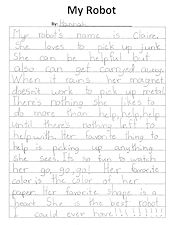 My Robot
By: Hannah
My robot's name is Claire.
She loves to pick up junk.
She can be helpful but
also can get carried away.
When it rains, her magnet
doesn't work to pick up metal.
There's nothing she likes to
do more than help, help, help
until there's nothing left to
help with. Her favorite thing to
help is picking up anything
she sees. Its so fun to watch
her go, go, go! Her favorite
color is the color of her
paper. Her favorite shape is a
heart. She is the best robot
I could ever have!!!!!!!